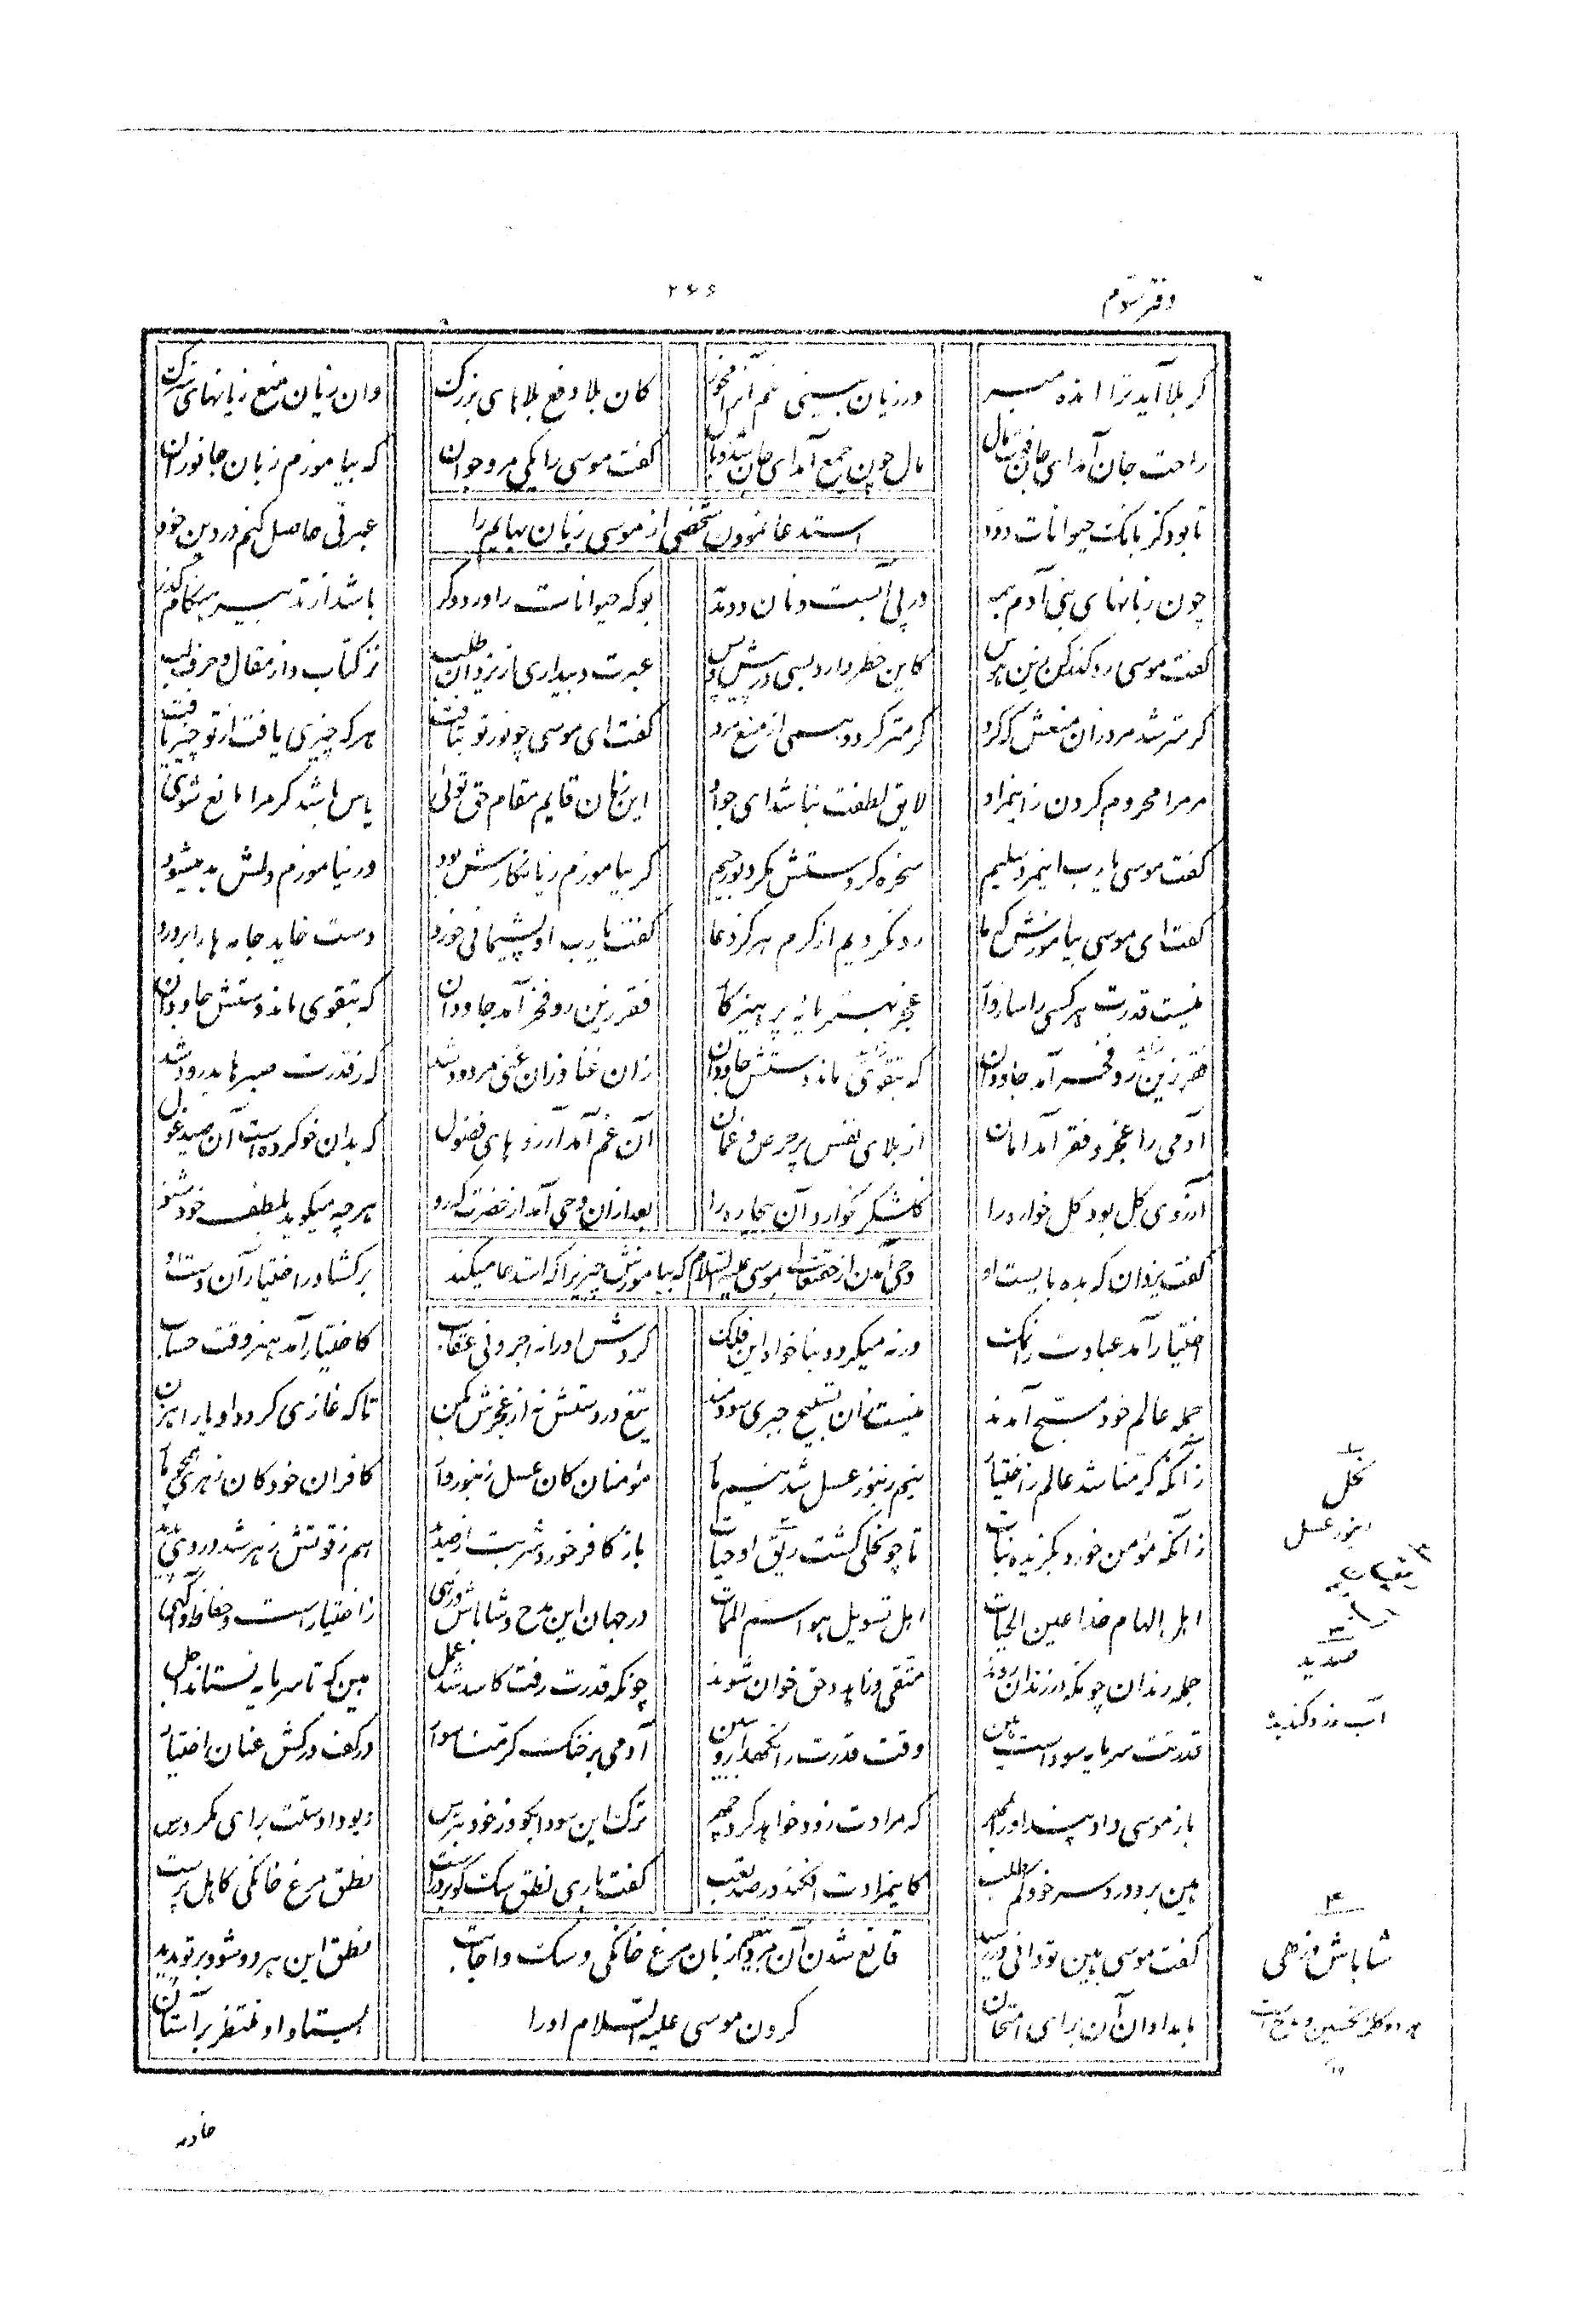 دفتر سوم
۲۶۶
گر بلا آید ترا انده مبر ورزیان بینی غم آنرا مخور کان بلا دفع بلاهای بزرگ وان زیان منع زیانهای سترگ
راحت جان آمد ای جان فوت مال مال چون جمع آمد ای جان شد وبال گفت موسی را یکی مرد جوان که بیاموزم زبان جانوران
استدعا نمودن شخصی از موسی زبان بهایم را
تا بود کز بانگ حیوانات ودد عبرتی حاصل کنم در دین خود
چون زبانهای بنی آدم همه در پی آبست و نان و دمدمه بوکه حیوانات را درد دگر باشد از تدبیر هنگام گذر
گفت موسی رو گذر کن زین هوس کاین خطر دارد بسی در پیش و پس عبرت و بیداری از یزدان طلب نز کتاب و از مقال و حرف لب
گرمتر شد مرد زان منعش که کرد گرمتر گردد همی از منع مرد گفت ای موسی چو نور تو بتافت هر که چیزی یافت از تو چیز یافت
مر مرا محروم کردن زین مراد لایق لطفت نباشد ای جواد این زمان قایم مقام حق توئی یاس باشد گر مرا مانع شوی
گفت موسی یا رب این مرد سلیم سخره کردستش مگر دیو رجیم گر بیاموزم زیانکارش بود ور نیاموزم دلش بد میشود
گفت ای موسی بیاموزش که ما رد نکردیم از کرم هرگز دعا گفت یا رب او پشیمانی خورد دست خاید جامه ها را بردرد
نیست قدرت هر کسی را سازوار عجز بهتر مایه پرهیزکار فقر زین رو فخر آمد جاودان که بتقوی ماند دستش جاودان
فقر زین رو فخر آمد جاودان که بتقوی ماند دستش جاودان زان غنا و زان غنی مردود شد که ز قدرت صبرها بدرود شد
آدمی را عجز و فقر آمد امان از بلای نفس پر حرص و غمان آن غم آمد آرزوهای فضول که بدان خو کرده است آن صید غول
آرزوی گل بود گل خواره را گلشکر نگوارد آن بیچاره را بعد از آن وحی آمد از حضرت که رو هر چه میگوید بلطف خود شنو
وحی آمدن از حقتعالی بموسی علیه السلام که بیاموزش چیزیرا که استدعا میکند
گفت یزدان که بده بایست او برگشا در اختیار آن دست او
اختیار آمد عبادت را نمک ورنه میگردد بناخواه این فلک گردش او را نه اجر و نی عقاب کاختیار آمد هنر وقت حساب
جمله عالم خود مسبح آمدند نیست آن تسبیح جبری سودمند تیغ در دستش نه از عجزش بکن تا که غازی گردد او یا راهزن
زآنکه کرمنا شد عالم ز اختیار نیم زنبور عسل شد نیم مار مؤمنان کان عسل زنبوروار کافران خود کان زهری همچو مار
زآنکه مؤمن خورد بگزیده نبات تا چو نحلی گشت ریق او حیات باز کافر خورد شربت از صدید هم ز قوتش زهر شد در وی پدید
اهل الهام خدا عین الحیات اهل تسویل هوا سم الممات در جهان این مدح و شاباش و زهی ز اختیار است و حفاظ و آگهی
جمله رندان چونکه در زندان روند متقی و زاهد و حق خوان شوند چونکه قدرت رفت کاسد شد عمل هین که تا سرمایه نستاند اجل
قدرتت سرمایه سود است هین وقت قدرت را نگهدار و ببین آدمی بر خنگ کرمنا سوار در کف درکش عنان اختیار
باز موسی داد پند او را بمهر که مرادت زرد خواهد کرد چهر ترک این سودا بگو وز خود بترس دیو دادستت برای مکر درس
هین برو درد سر خود کم طلب کاین مرادت افکند در صد تعب گفت باری نطق سگ کو بر در است نطق مرغ خانگی کاهل پر است
قانع شدن آن مرد بتعلیم زبان مرغ خانگی و سگ و اجابت
گفت موسی هین تو دانی رو رسید نطق این هر دو شود بر تو پدید
کردن موسی علیه السلام او را
بامدادان آن برای امتحان ایستاد او منتظر بر آستان
نحل
زنبور عسل
صدید
آب زرد گندیده
۴
شاباش و زهی
هر دو کلمه تحسین و مدح است
خادمه